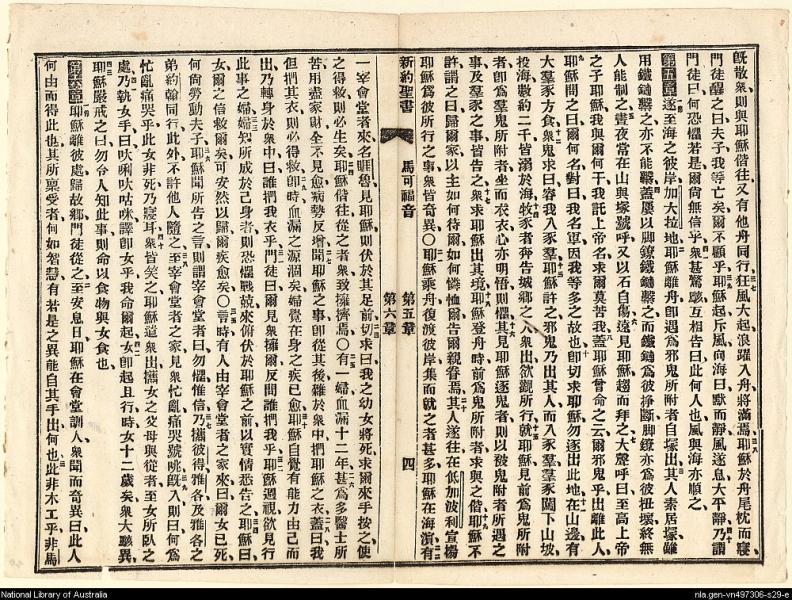 既散衆則與耶穌偕往又有他舟同行狂風大起浪躍入舟將滿焉耶穌於舟尾枕而寢
門徒醒之曰夫子我等亡矣爾不顧乎耶穌起斥風向海曰默而靜風遂息大平靜乃謂
門徒曰何恐懼若是爾尚無信乎衆甚驚駭互相告曰此何人也風與海亦順之
第五章 遂至海之彼岸加大拉地耶穌離舟卽遇爲邪鬼所附者自塚出其人素居塚雖
用鐵鏈繫之亦不能羈蓋屢以脚鐐鐵鏈繫之而鐵鏈爲彼掙斷脚鐐亦爲彼扭壞終無
人能制之晝夜常在山與塚號呼又以石自傷遠見耶穌趨而拜之大聲呼曰至高上帝
之子耶穌我與爾何干我託上帝名求爾莫苦我蓋耶穌曾命之云爾邪鬼乎出離此人
耶穌問之曰爾何名對曰我名軍因我等多之故也卽切求耶穌勿逐出此地在山邊有
大羣豕方食衆鬼求曰容我入豕羣耶穌許之邪鬼乃出其人而入豕羣羣豕闖下山坡
投海數約二千皆溺於海牧豕者奔告城鄉之人衆出欲觀所行就耶穌見前爲鬼所附
者卽爲羣鬼所附者坐而衣衣心亦明悟則懼其見耶穌逐鬼者則以被鬼附者所遇之
事及羣豕之事皆告之衆求耶穌出其境耶穌登舟時前爲鬼所附者求與之偕耶穌不
許謂之曰歸爾家以主如何待爾如何憐恤爾告爾親眷焉其人遂往在低加波利宣揚
耶穌爲彼所行之事衆皆奇異○耶穌乘舟復渡彼岸集而就之者甚多耶穌在海濱有
新約聖書 馬可福音 第五章 第六章 四
一宰會堂者來名睚魯見耶穌則伏於其足前切求曰我之幼女將死求爾來手按之使
之得救則必生矣耶穌偕往從之者衆致擁擠焉○有一婦血漏十二年甚爲多醫士所
苦用盡家財全不見愈病勢反增聞耶穌之事卽從其後雜於衆中捫耶穌之衣蓋曰我
但捫其衣則必得救卽時血漏之源涸矣婦覺在身之疾已愈耶穌自覺有能力由己而
出乃轉身於衆中曰誰捫我衣乎門徒曰爾見衆擁爾反問誰捫我乎耶穌週視欲見行
此事之婦婦知所成於己身者則恐懼戰兢來俯伏於耶穌之前以實情悉告之耶穌曰
女爾之信救爾矣可安然以歸爾疾愈矣○言時有人由宰會堂者之家來曰爾女已死
何尚勞動夫子耶穌聞所告之言則謂宰會堂者曰勿懼惟信乃攜彼得雅各及雅各之
弟約翰同行此外不許他人隨之至宰會堂者之家見衆忙亂痛哭號咷旣入則曰何爲
忙亂痛哭乎此女非死乃寢耳衆皆笑之耶穌遣衆出攜女之父母與從者至女所臥之
處乃執女手曰大唎大咕咪譯卽女乎我命爾起女卽起且行時女十二歲矣衆大駭異
耶穌嚴戒之曰勿令人知此事則命以食物與女食也
第六章 耶穌離彼處歸故鄉門徒從之至安息日耶穌在會堂訓人衆聞而奇異曰此人
何由而得此也其所禀受者何如智慧有若是之異能自其手出何也此非木工乎非馬
National Library of Australia
nla.gen-vn497306-s29-e